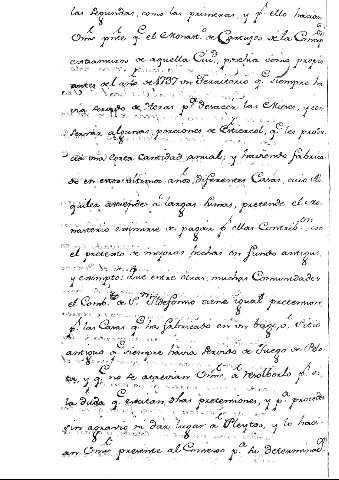 las segundas, como las primeras, y pª ello hacian
Vms preste qe el Monastº de Cartujos de la Concepª
extramuros de aquella Ciud, posehia como propio
antes del año de 1737 un Territorio qe siempre ha
via servido de Heras pª desacer las Mieses, y en
serrar algunas porciones de Estiercol, qe les produ
cia una corta Cantidad anual; y haviendo fabrica
do en estos ultimos años, diferentes Casas, cuio Al
quiler asciende a largas sumas, pretende el Mo
nasterio eximirse de pagar pr ellas Contribon con
el pretexto de mejoras hechas en fundo antiguo,
y exempto: Que entre otras, muchas Comunidades
el Combto de Sn Ildefonso tiene igual pretension
pr las Casas qe ha fabricado en un baxo, o Sitio
antiguo qe siempre havia servido de Juego de Pelo
ta, y qe no se atrevian Vms a resolberlo pr
la duda qe excitan dhas pretensiones, y pª proceder
sin agravio ni dar lugar a Pleytos, y lo haci
an Vms presente al Consejo pª su determinacon